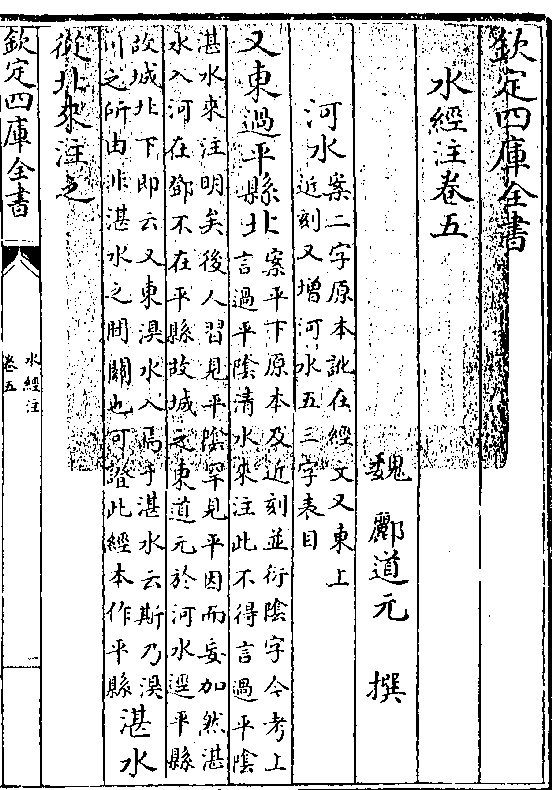 欽定四庫全書
水經注卷五
魏 酈道元 撰
河水
案二字原本訛在經文又東上
近刻又增河水五三字表目
又東過平縣北
案平下原本及近刻並衍隂字今考上
言過平隂清水來注此不得言過平隂
湛水來注明矣後人習見平隂罕見平因而妄加然湛
水入河在鄧不在平縣故城之東道元於河水逕平縣
故城北下即云又東湨水入焉乎湛水云斯乃湨
川之所由非湛水之間關也可證此經本作平縣
湛水
從北來注之
欽定四庫全書
水經注
卷五
一